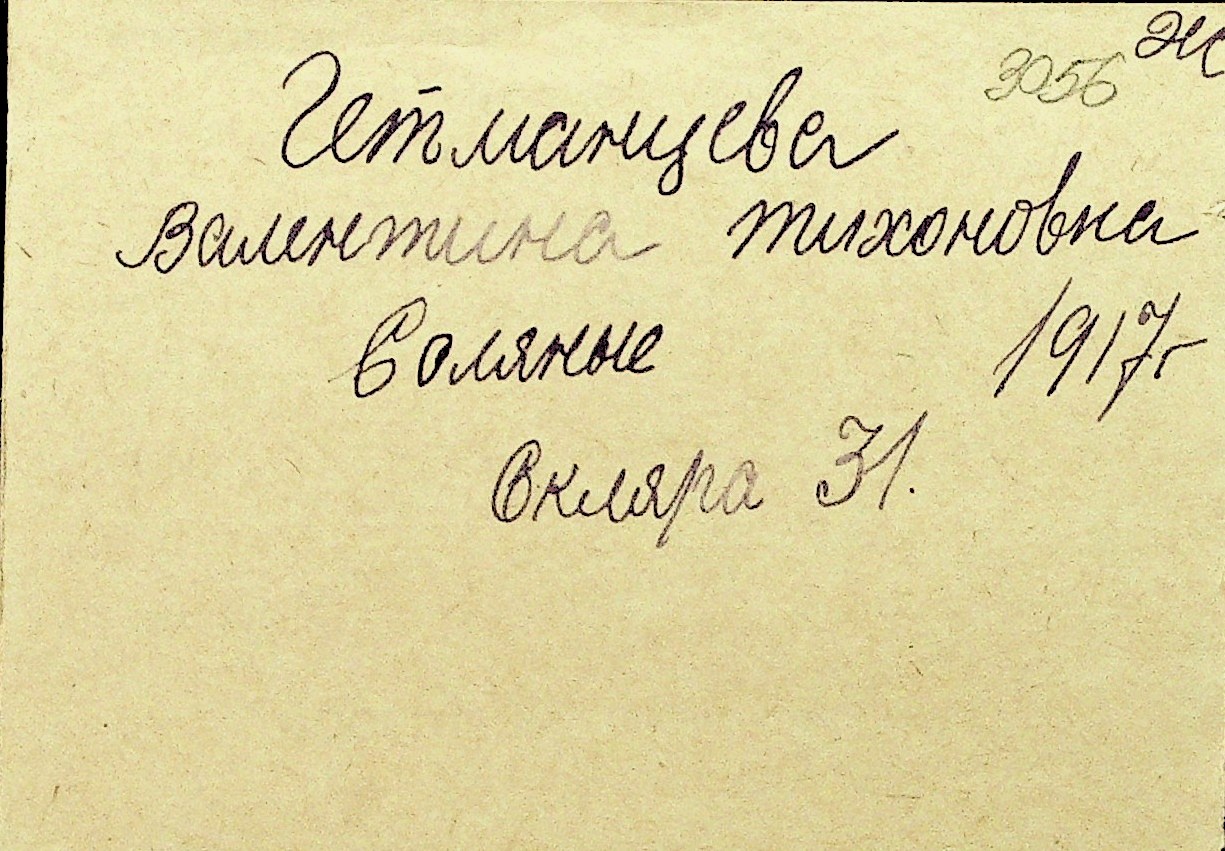 3056 Ж
Гетманцева
Валентина Тихоновна
Соляные 1917г
Скляра 31.